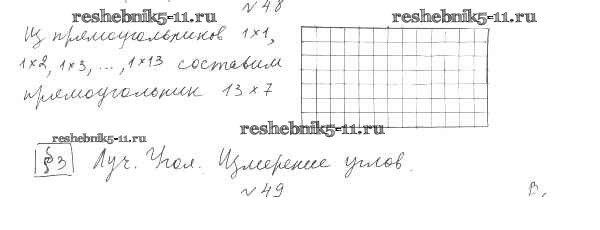 №48
reshebnik5-11.ru reshebnik5-11.ru
Из прямоугольников 1×1,
1×2, 1×3, ..., 1×13 составим
прямоугольник 13×7
reshebnik5-11.ru
reshebnik5-11.ru
§3 Луч. Угол. Измерение углов.
№49
В,